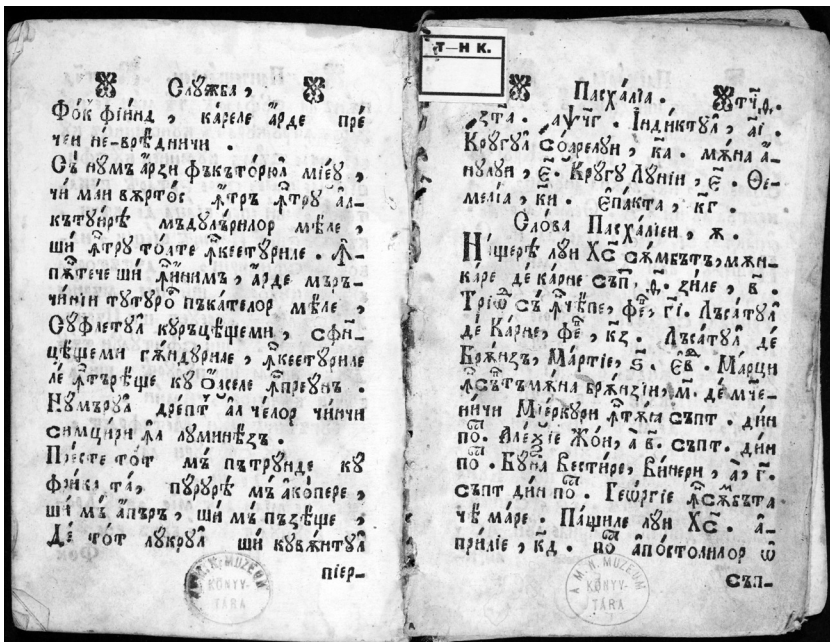 Слꙋжба,
Фо́к фіи́нд, ка́реле а҆́рде пре́
чеи не-вре́дничи.
Съ нꙋм а҆́рзи фъкъто́рюл мїе́ꙋ,
чи маи вѫрто́с ꙟ҆тръ ꙟ҆трꙋ а҆л-
кътꙋи́рѣ мъдꙋлъ́рилор мѣ́ле,
ши ꙟ҆трꙋ то́ате ꙟ҆кеетꙋ́риле. Ꙟ҆н
ши ꙟ҆и́нимъ, а҆́рде мъръ-
чи́нїи тꙋтꙋро̑ пъка́телор мѣ́ле,
Сꙋ́флетꙋл кꙋръцѣ́щеми, сфи҆-
цѣ́щеми гѫ́ндꙋриле, ꙟ҆кеетꙋ́риле
ле ꙟ҆търѣ́ще кꙋ о҆а́селе ꙟ҆преꙋ́нъ.
Нꙋ́мърꙋл дре́пт а҆л че́лор чи́нчи
симци́ри ꙟ҆л лꙋминѣ́зъ.
Пре́сте то́т мъ пътрꙋ́нде кꙋ
фри́ка та̀, пꙋ́рꙋрѣ мъ а҆ко́пере,
ши мъ а҆́пъръ, ши мъ пъзѣ́ще,
Де то́т лꙋ́крꙋл ши кꙋвѫ́нтꙋл
піер-
Т—Н К.
Пасха́лїа.
҂зта. ҂аѱчг. І҆нди́ктꙋл, а҃і.
Крꙋ́гꙋл со́арелꙋи, ка. мѫ́на а҆́-
нꙋлꙋи, є҃. Крꙋ́гꙋ Лꙋ́нїи, є҃. Ѳе-
ме́лїа, ки. Є҆па́кта, кг.
Сло́ва Пасха́лїеи, ж.
На́щерѣ лꙋи Хс҃ сѫ́мбътъ, мѫни-
каре де ка́рне съп. зи́ле, в҃.
Трїѡ̑ съ ꙟ҆че́пе, фе҆, гі. Лъса́тꙋл
де Ка́рне, фе҆, кз. Лъса́тꙋл де
Брѫ́нзъ, Ма́ртїе, ѕ҃. Є҆в. Ма́рци
ꙟ҆ съптъмѫ́на брѫ́нзїи, м҃. де мꙋче-
ничи Мїе́ркꙋри ꙟ҆тѫ́ѧ съпт. дин
по̑. А҆ле́ѯїе Жо́и, а҆ в҃. съпт. дин
по̑. Бꙋ́на Вести́ре, Ви́нери, а҆, г҃.
съпт дин по̑. Гео́ргїе ꙟ҆ сѫмбъта
чѣ ма́ре. Па́щиле лꙋи Хс҃. а҆-
при́лїе, кд. по̑ а҆по́столилор ѿ
съп-
A. M. N. MUZEUM
KÖNYV-
TÁRA
A. M. N. MUZEUM
KÖNYV-
TÁRA